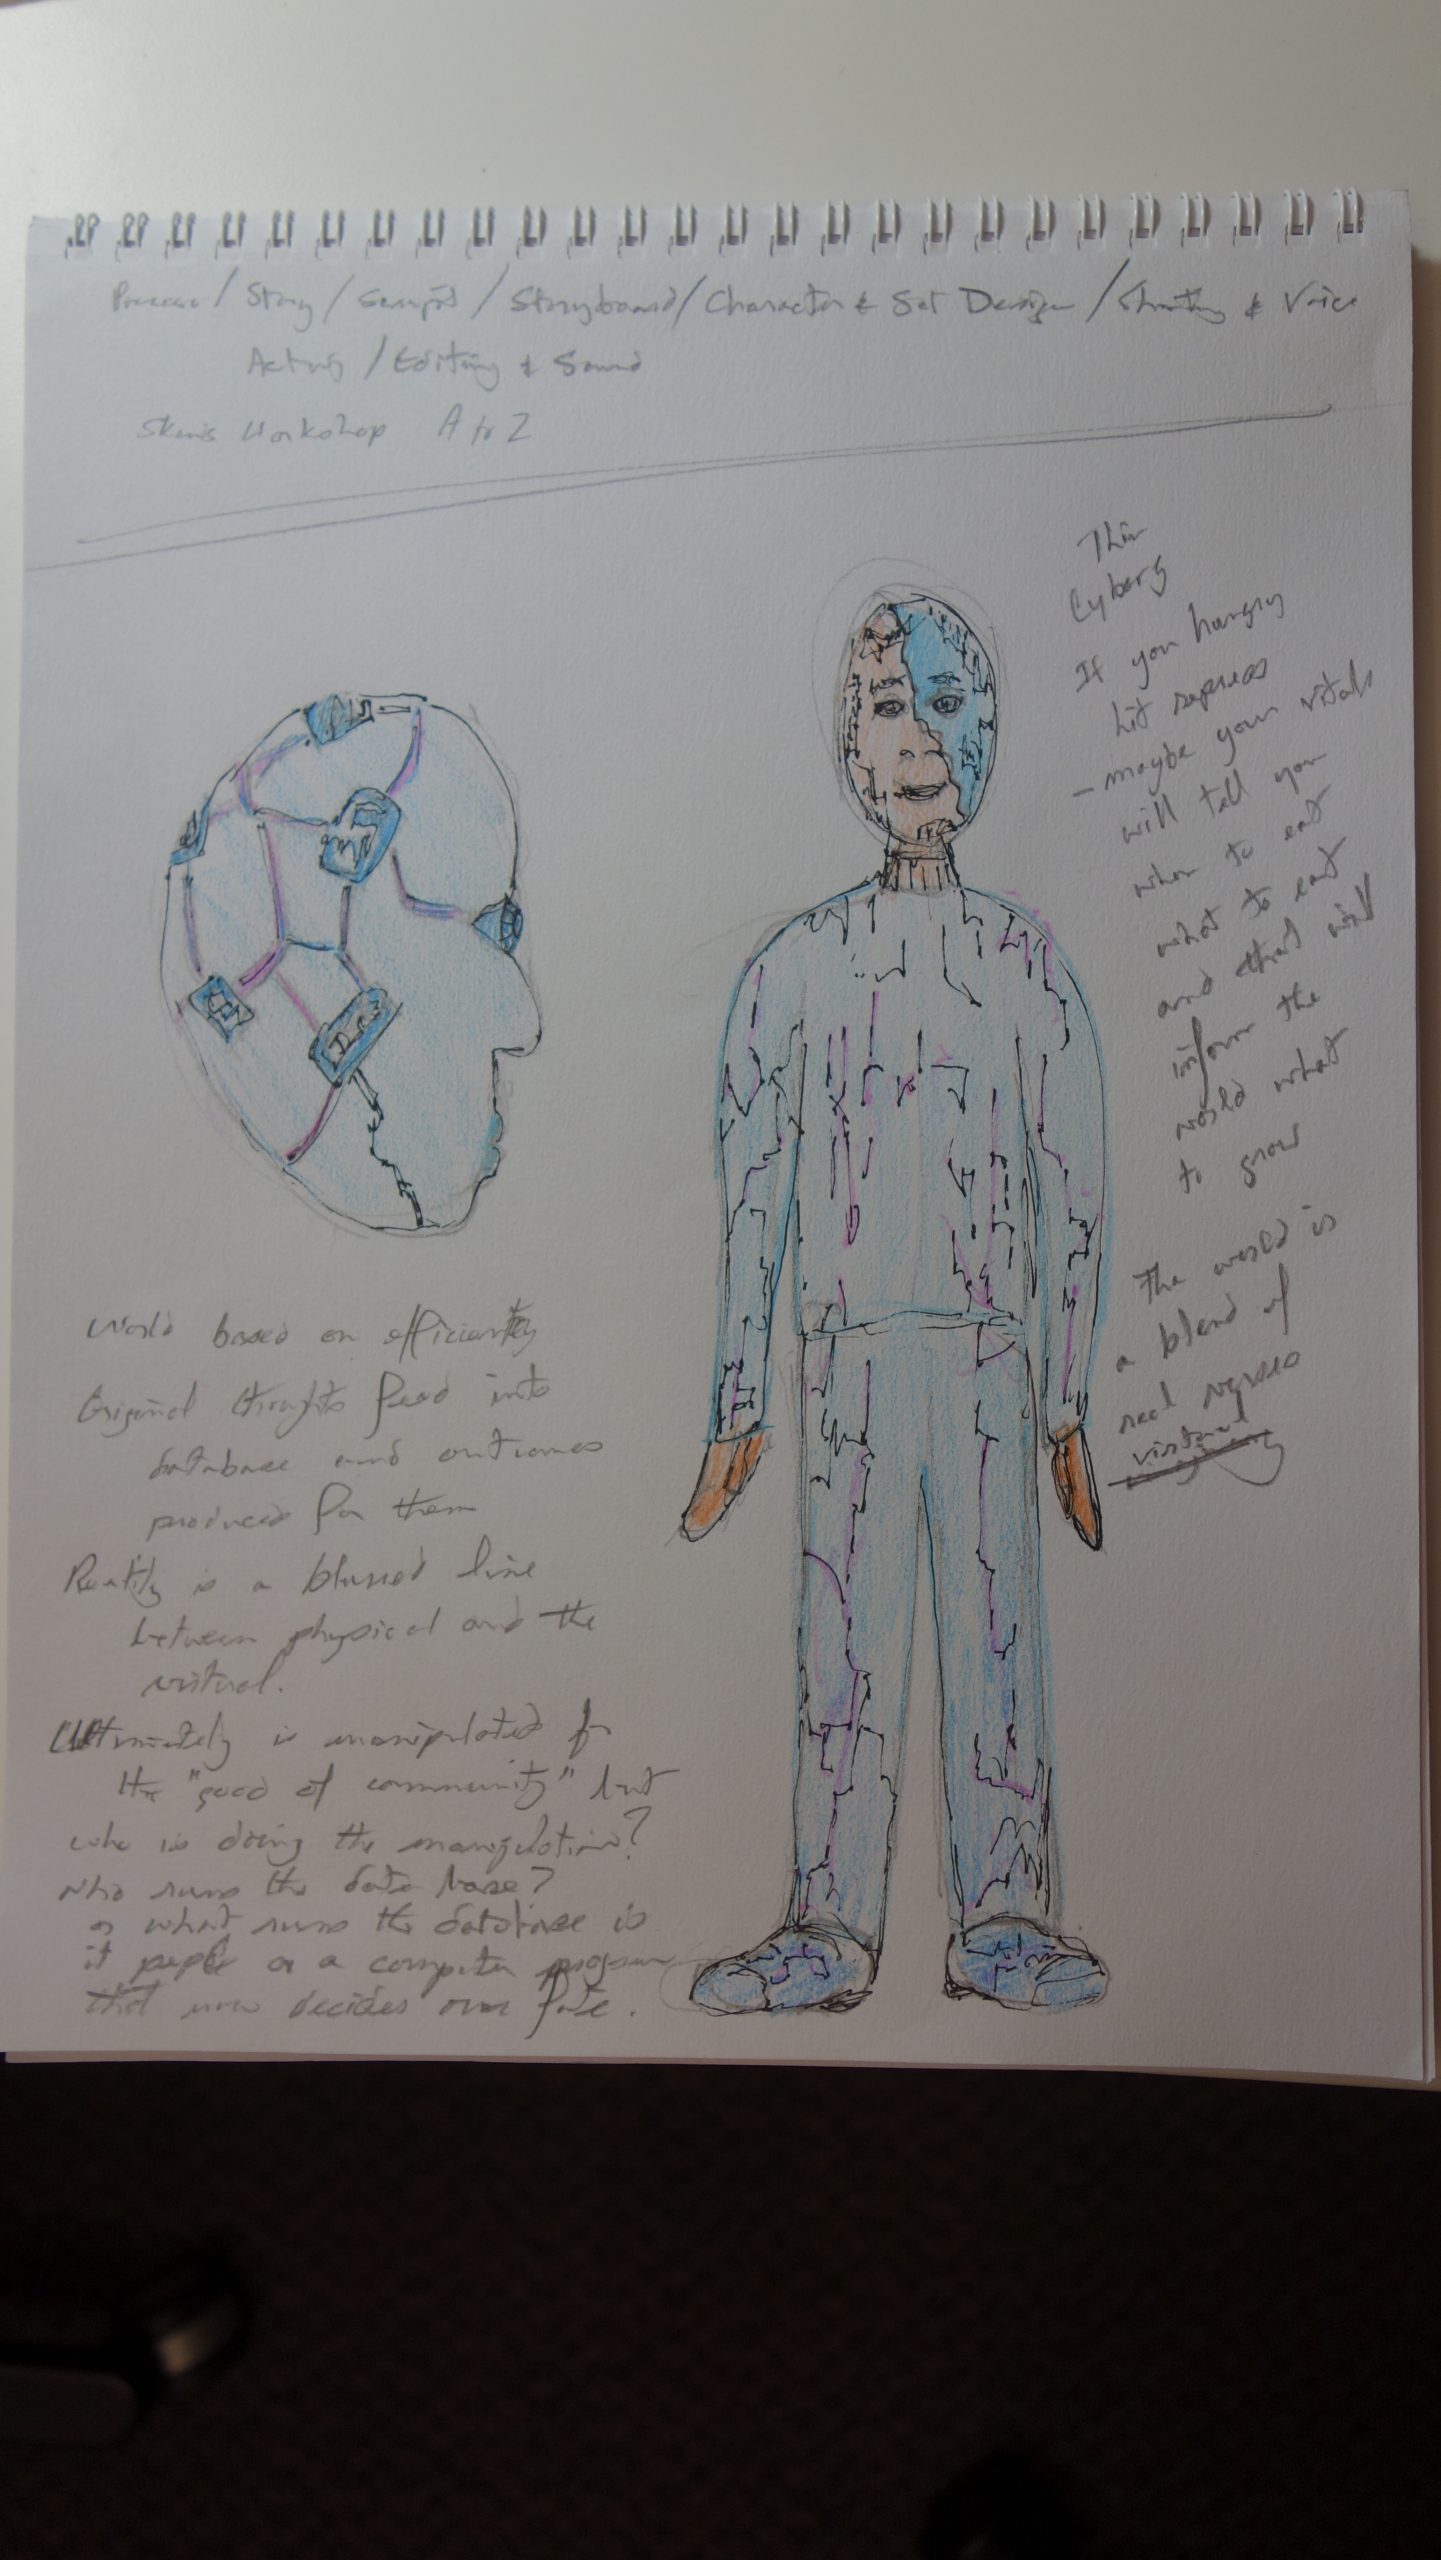 Process / Story / Script / Storyboard / Character & Set Design / Shooting & Voice
Acting / Editing & Sound
Workshop A to Z
Thin
Cyborg
If you hungry
hit
- maybe your vitals
will tell you
when to eat
what to eat
and that will
inform the
world what
to grow
The world is
a blend of
real
virtual
World based on efficiently
Original thoughts feed into
database and outcomes
produced for them
Reality is a blurred line
between physical and the
virtual.
Ultimately is manipulated for
the "good of community" but
who is doing the manipulation?
Who runs the data base?
or what runs the database is
it people or a computer program
that now decides our fate.